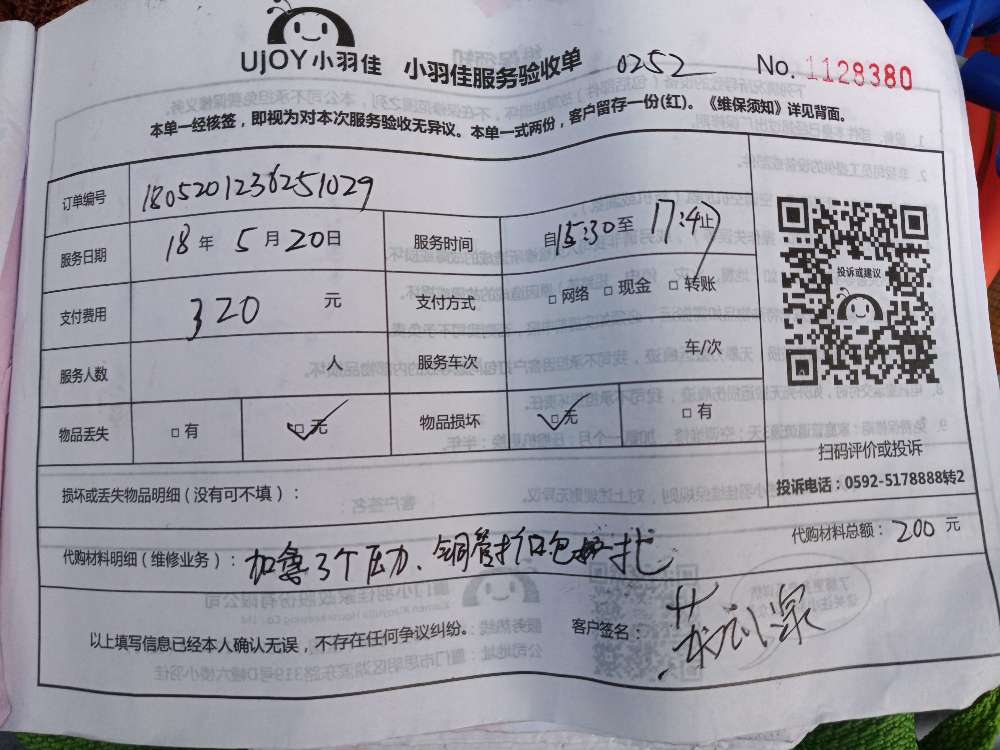 UJOY小羽佳 小羽佳服务验收单 0252 No. 1128380
本单一经核签，即视为对本次服务验收无异议。本单一式两份，客户留存一份(红)。《维保须知》详见背面。
订单编号 1805201236251029
服务日期 18 年 5 月 20 日 服务时间 自 15:30 至 17:42 止
投诉或建议
支付费用 320 元 支付方式 □ 网络 □ 现金 □ 转账
服务人数 人 服务车次 车/次
物品丢失 □ 有 □ 无 物品损坏 □ 无 □ 有
扫码评价或投诉
投诉电话：0592-5178888转2
损坏或丢失物品明细（没有可不填）：
代购材料明细（维修业务）：加氟3个压力、铜管打扣包扎 代购材料总额：200 元
以上填写信息已经本人确认无误，不存在任何争议纠纷。 客户签名：